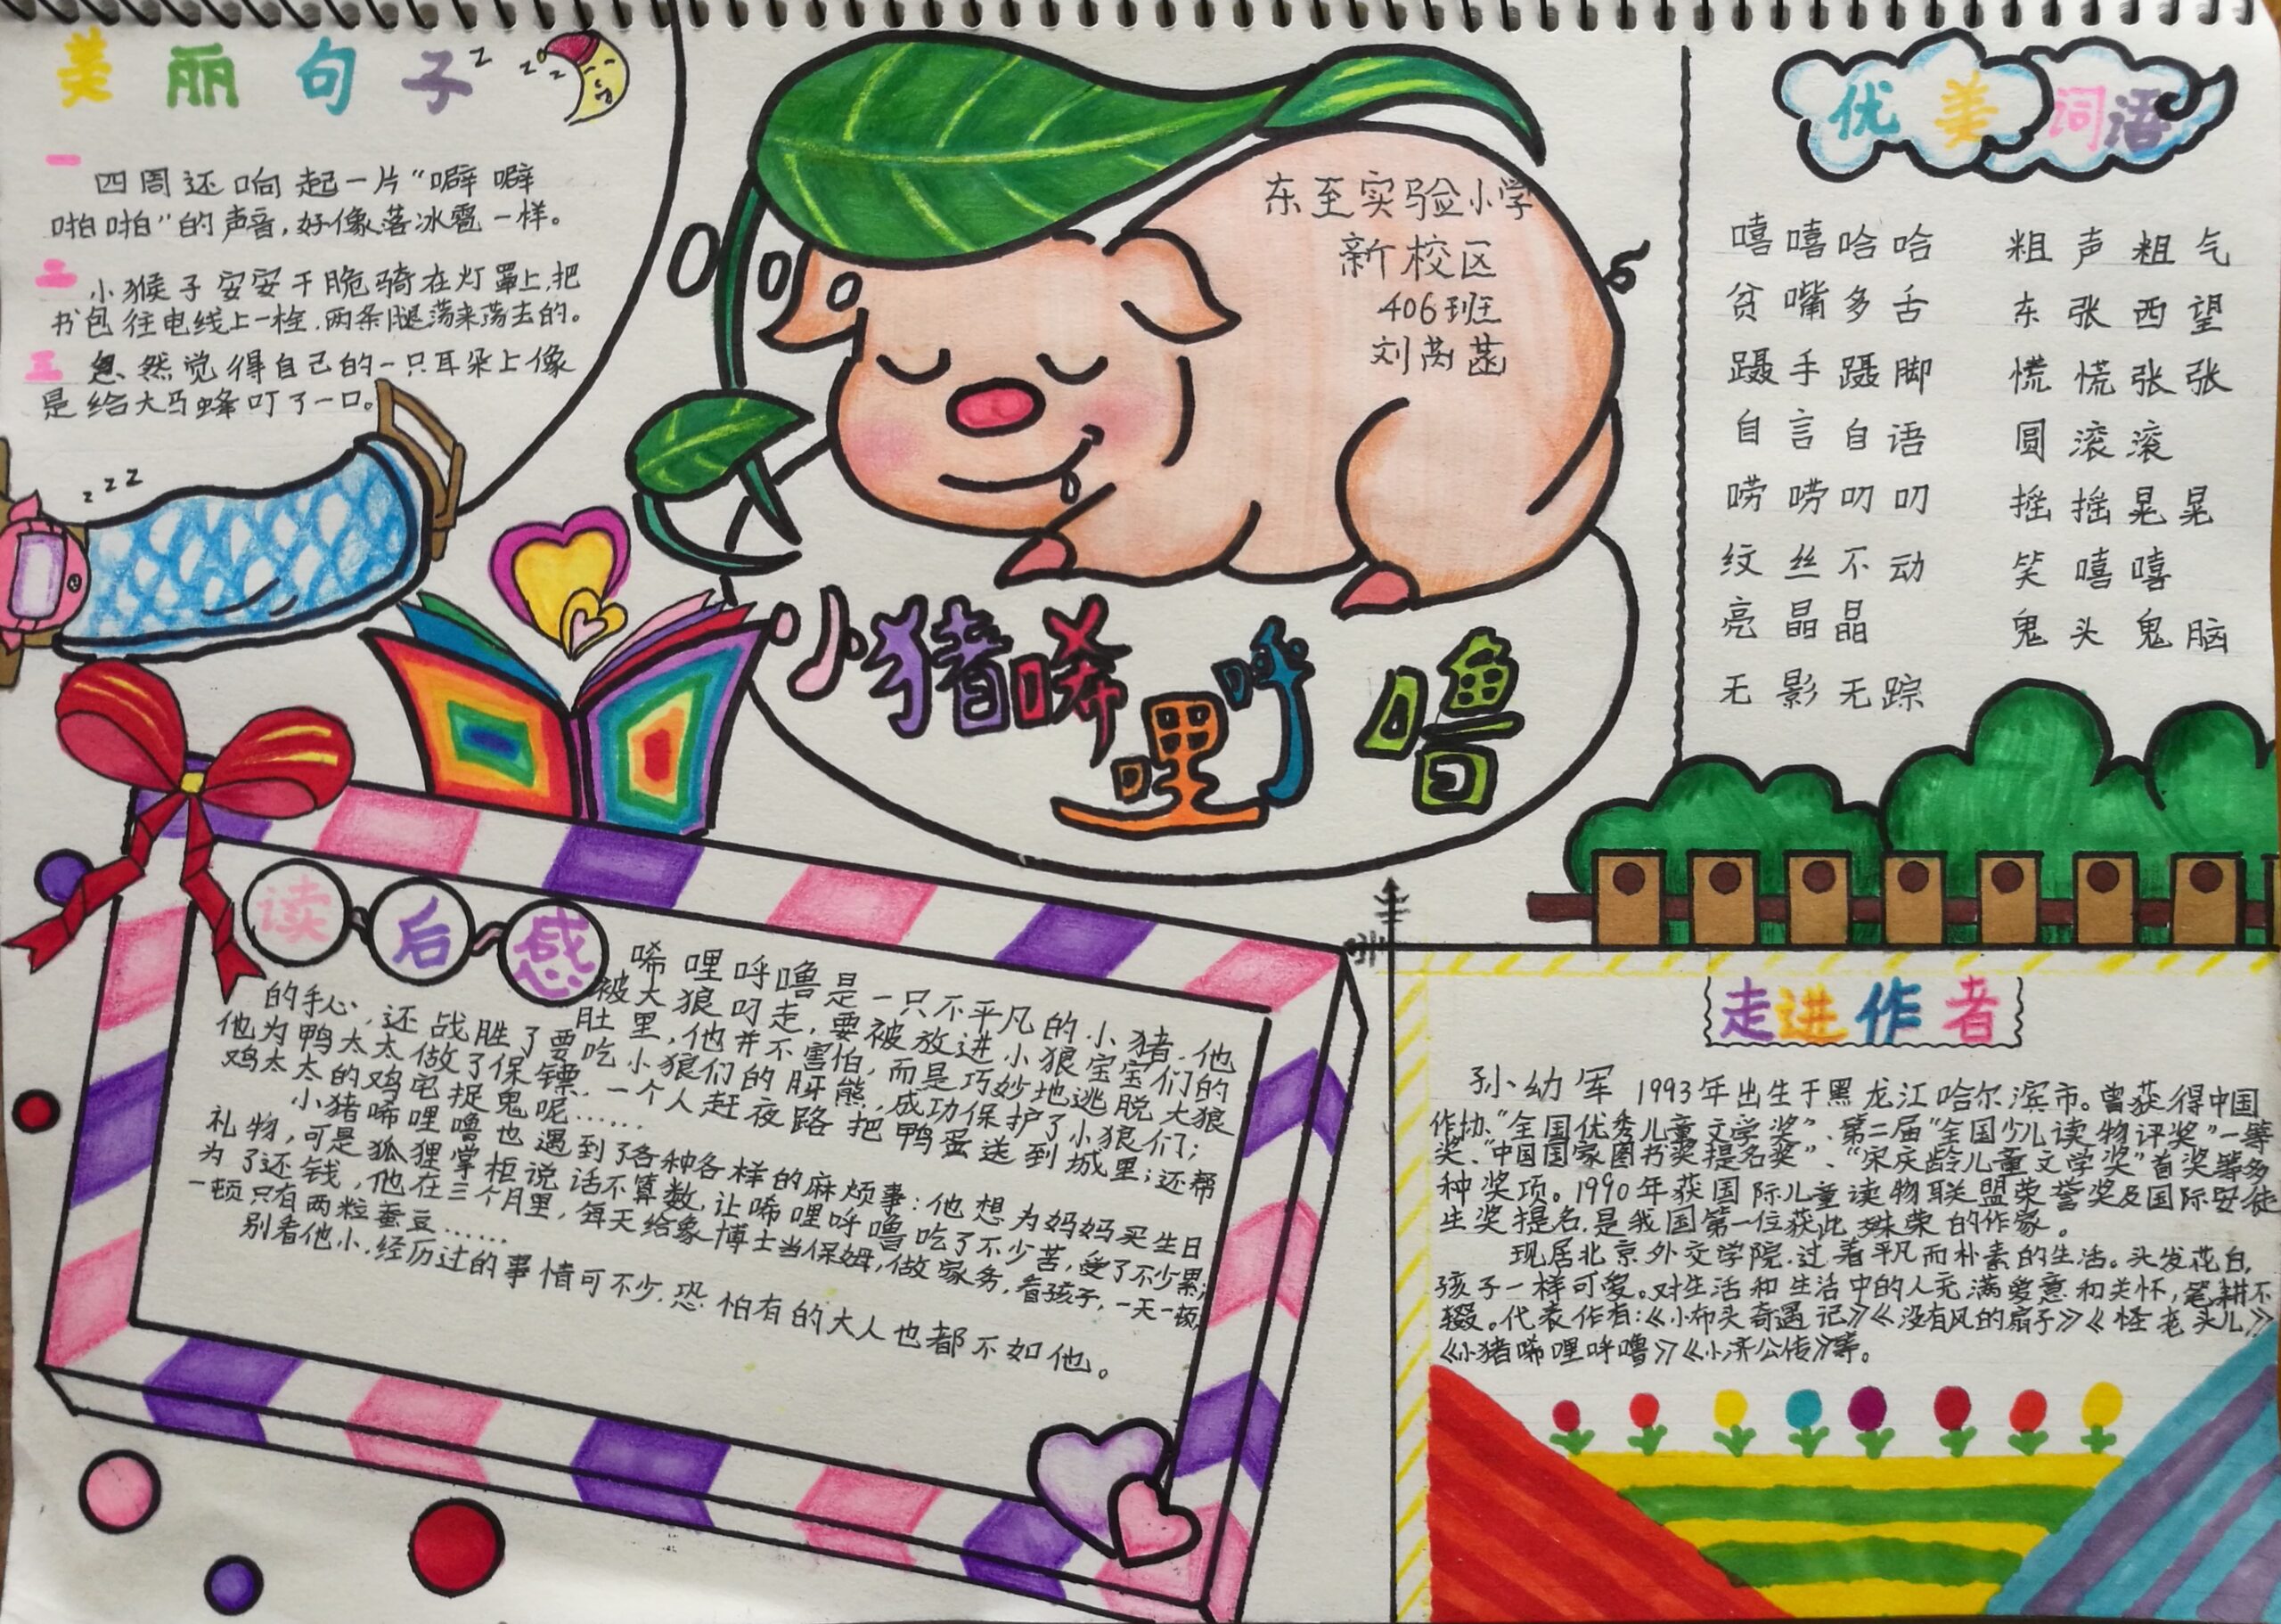 美丽句子
z z z
一
四周还响起一片“噼噼
啪啪”的声音,好像落冰雹一样。
二
小猴子安安干脆骑在灯罩上,把
书包往电线上一栓.两条腿荡来荡去的。
三
忽然觉得自己的一只耳朵上像
是给大马蜂叮了一口。
z z z
东至实验小学
新校区
406班
刘
小猪唏哩呼噜
优美词语
嘻嘻哈哈 粗声粗气
贫嘴多舌 东张西望
蹑手蹑脚 慌慌张张
自言自语 圆滚滚
唠唠叨叨 摇摇晃晃
纹丝不动 笑嘻嘻
亮晶晶 鬼头鬼脑
无影无踪
读后感
唏哩呼噜是一只不平凡的小猪.他
被大狼叼走,要被放进小狼宝宝们的
肚里,他并不害怕,而是巧妙地逃脱大狼
的手心,还战胜了要吃小狼们的月牙熊,成功保护了小狼们;
他为鸭太太做了保镖.一个人赶夜路把鸭蛋送到城里;还帮
鸡太太的鸡宅捉鬼呢……
小猪唏哩噜也遇到了各种各样的麻烦事:他想为妈妈买生日
礼物,可是狐狸掌柜说话不算数,让唏哩呼噜吃了不少苦,受了不少累;
为了还钱,他在三个月里,每天给象博士当保姆,做家务,看孩子,一天一顿,
一顿只有两粒蚕豆……
别看他小.经历过的事情可不少.恐怕有的大人也都不如他。
走进作者
孙幼军 1993年出生于黑龙江哈尔滨市。曾获得中国
作协“全国优秀儿童文学奖”、第二届“全国少儿读物评奖”一等
奖、“中国国家图书奖提名奖”、“宋庆龄儿童文学奖”首奖等多
种奖项。1990年获国际儿童读物联盟荣誉奖及国际安徒
生奖提名.是我国第一位获此殊荣的作家。
现居北京外交学院.过着平凡而朴素的生活。头发花白,
孩子一样可爱。对生活和生活中的人充满爱意和关怀,笔耕不
辍。代表作有:《小布头奇遇记》《没有风的扇子》《怪老头儿》
《小猪唏哩呼噜》《小济公传》等。